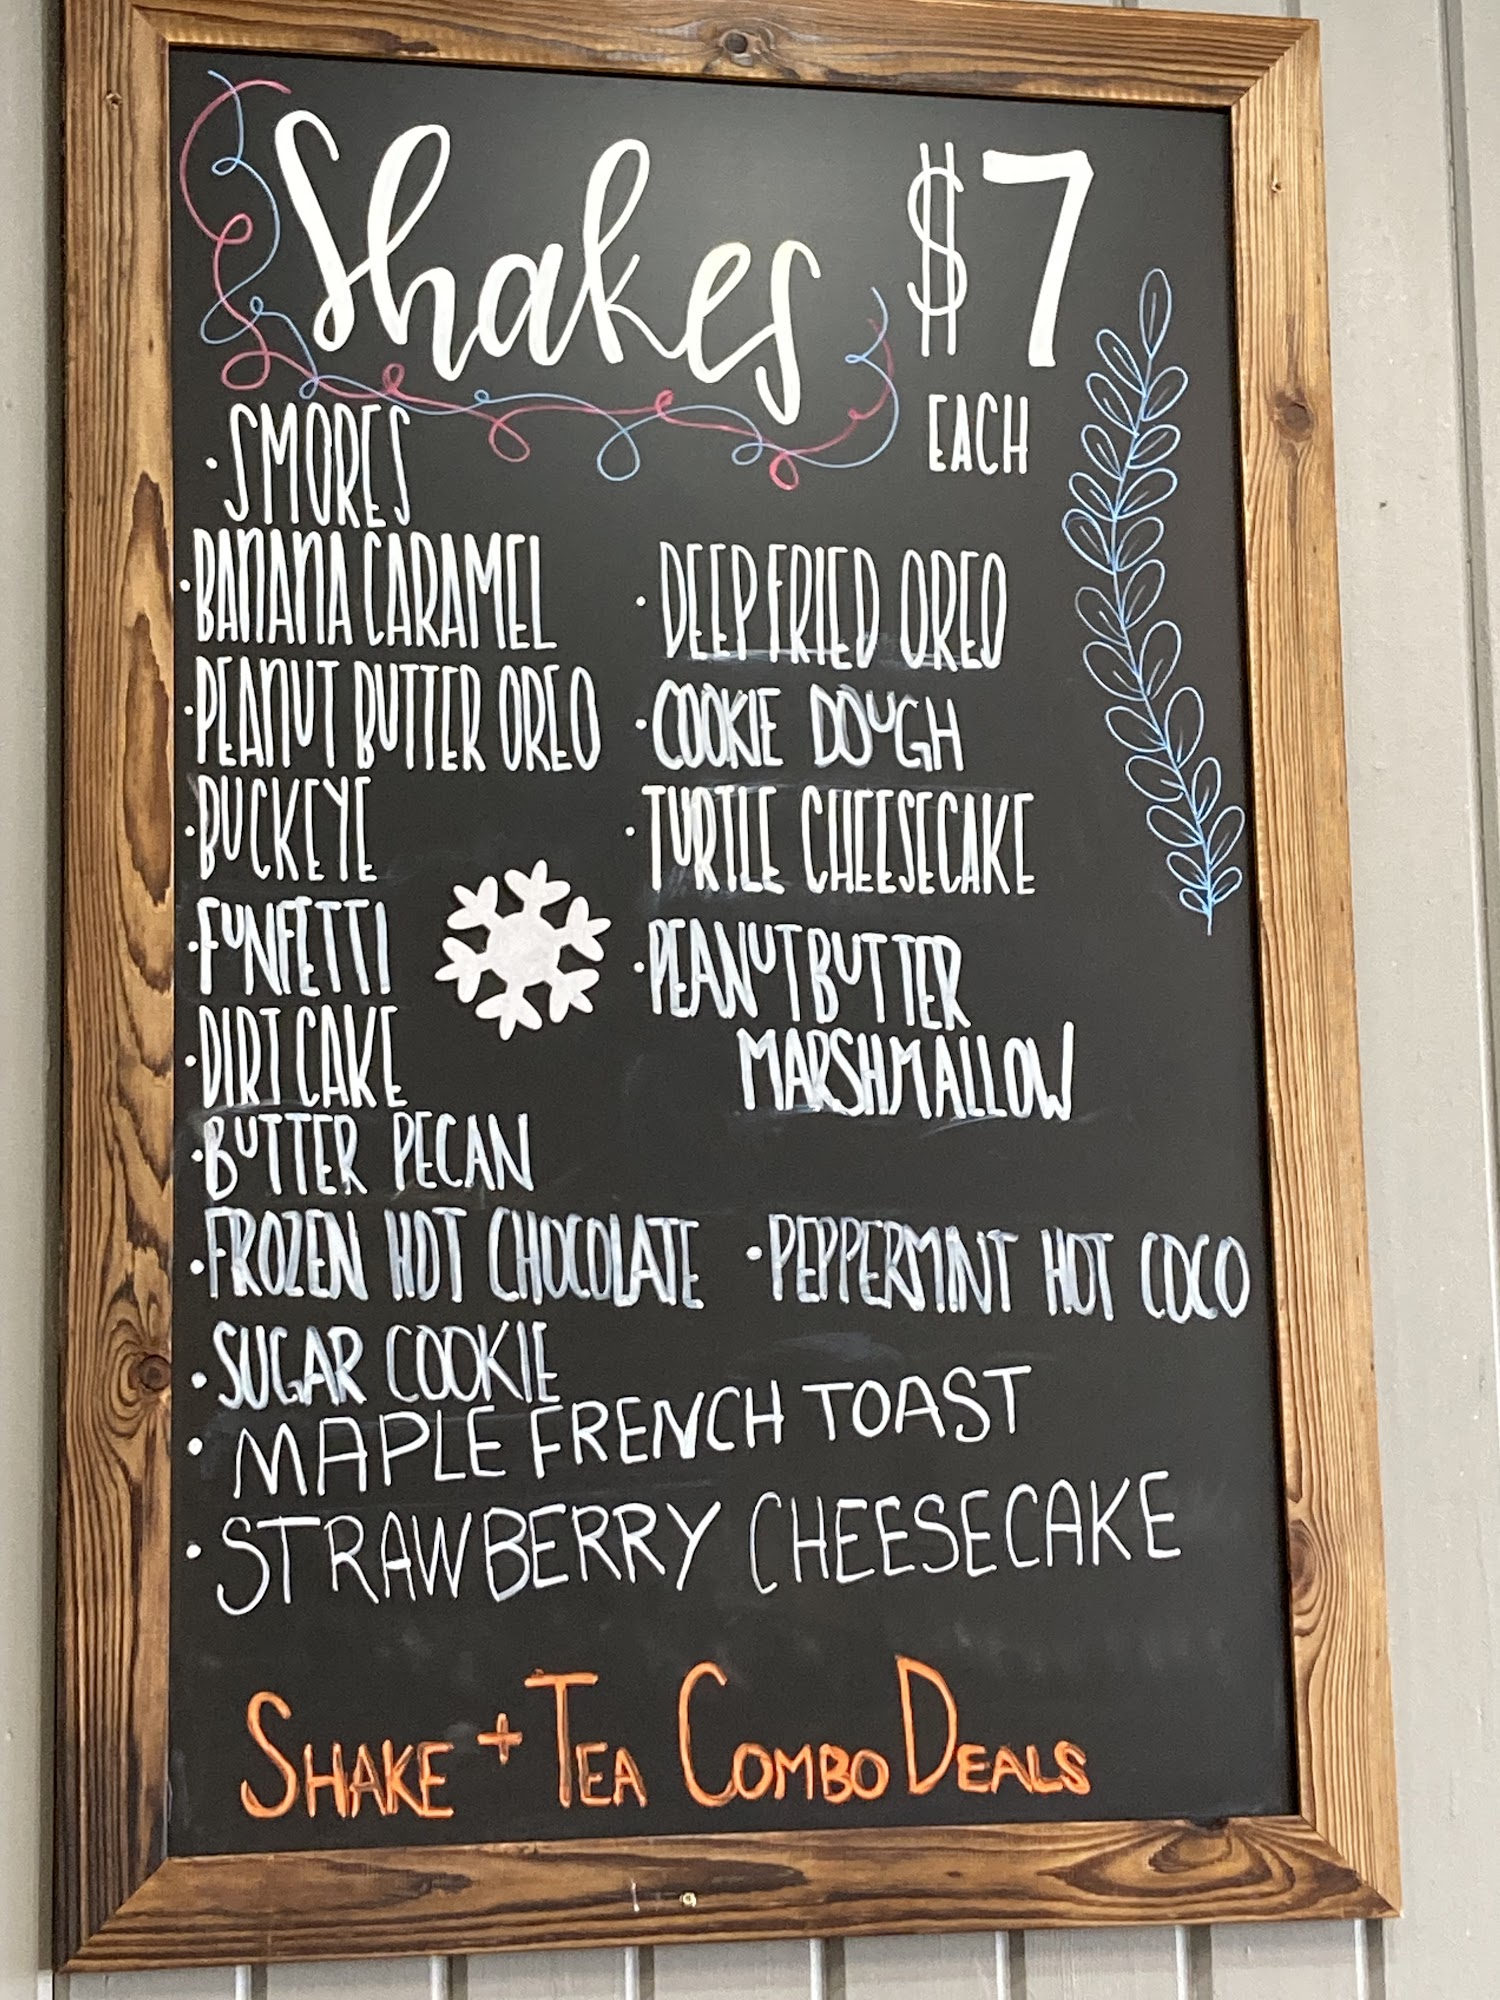 Shakes $7
EACH
· SMORES
· BANANA CARAMEL
· PEANUT BUTTER OREO
· BUCKEYE
· FUNFETTI
· DIRT CAKE
· BUTTER PECAN
· FROZEN HOT CHOCOLATE
· SUGAR COOKIE
· MAPLE FRENCH TOAST
· STRAWBERRY CHEESECAKE
· DEEP FRIED OREO
· COOKIE DOUGH
· TURTLE CHEESECAKE
· PEANUT BUTTER
MARSHMALLOW
· PEPPERMINT HOT COCO
SHAKE + TEA COMBO DEALS